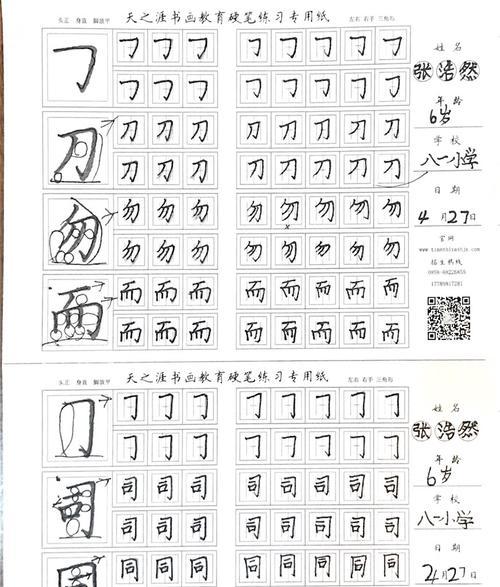 头正 身直 脚放平 天之涯书画教育硬笔练习专用纸 左右 右手 三角形
㇆ ㇆ ㇆ ㇆ ㇆ ㇆ ㇆ ㇆ ㇆
㇆ ㇆ ㇆ ㇆ ㇆ ㇆ ㇆ ㇆
刀 刀 刀 刀 刀 刀 刀 刀 刀
刀 刀 刀 刀 刀 刀 刀 刀
勿 勿 勿 勿 勿 勿 勿 勿 勿
勿 勿 勿 勿 勿 勿 勿 勿
而 而 而 而 而 而 而 而 而
而 而 而 而 而 而 而 而
姓 名
张浩然
年 龄
6岁
学 校
八一小学
日 期
4月27日
官网
招生热线
17789817281
头正 身直 脚放平 天之涯书画教育硬笔练习专用纸 左右 右手 三角形
㇆ ㇆ ㇆ ㇆ ㇆ ㇆ ㇆ ㇆ ㇆
㇆ ㇆ ㇆ ㇆ ㇆ ㇆ ㇆ ㇆
司 司 司 司 司 司 司 司 司
司 司 司 司 司 司 司 司
同 同 同 同 同 同 同 同 同
姓 名
张浩然
年 龄
6岁
学 校
八一小学
日 期
4月27日